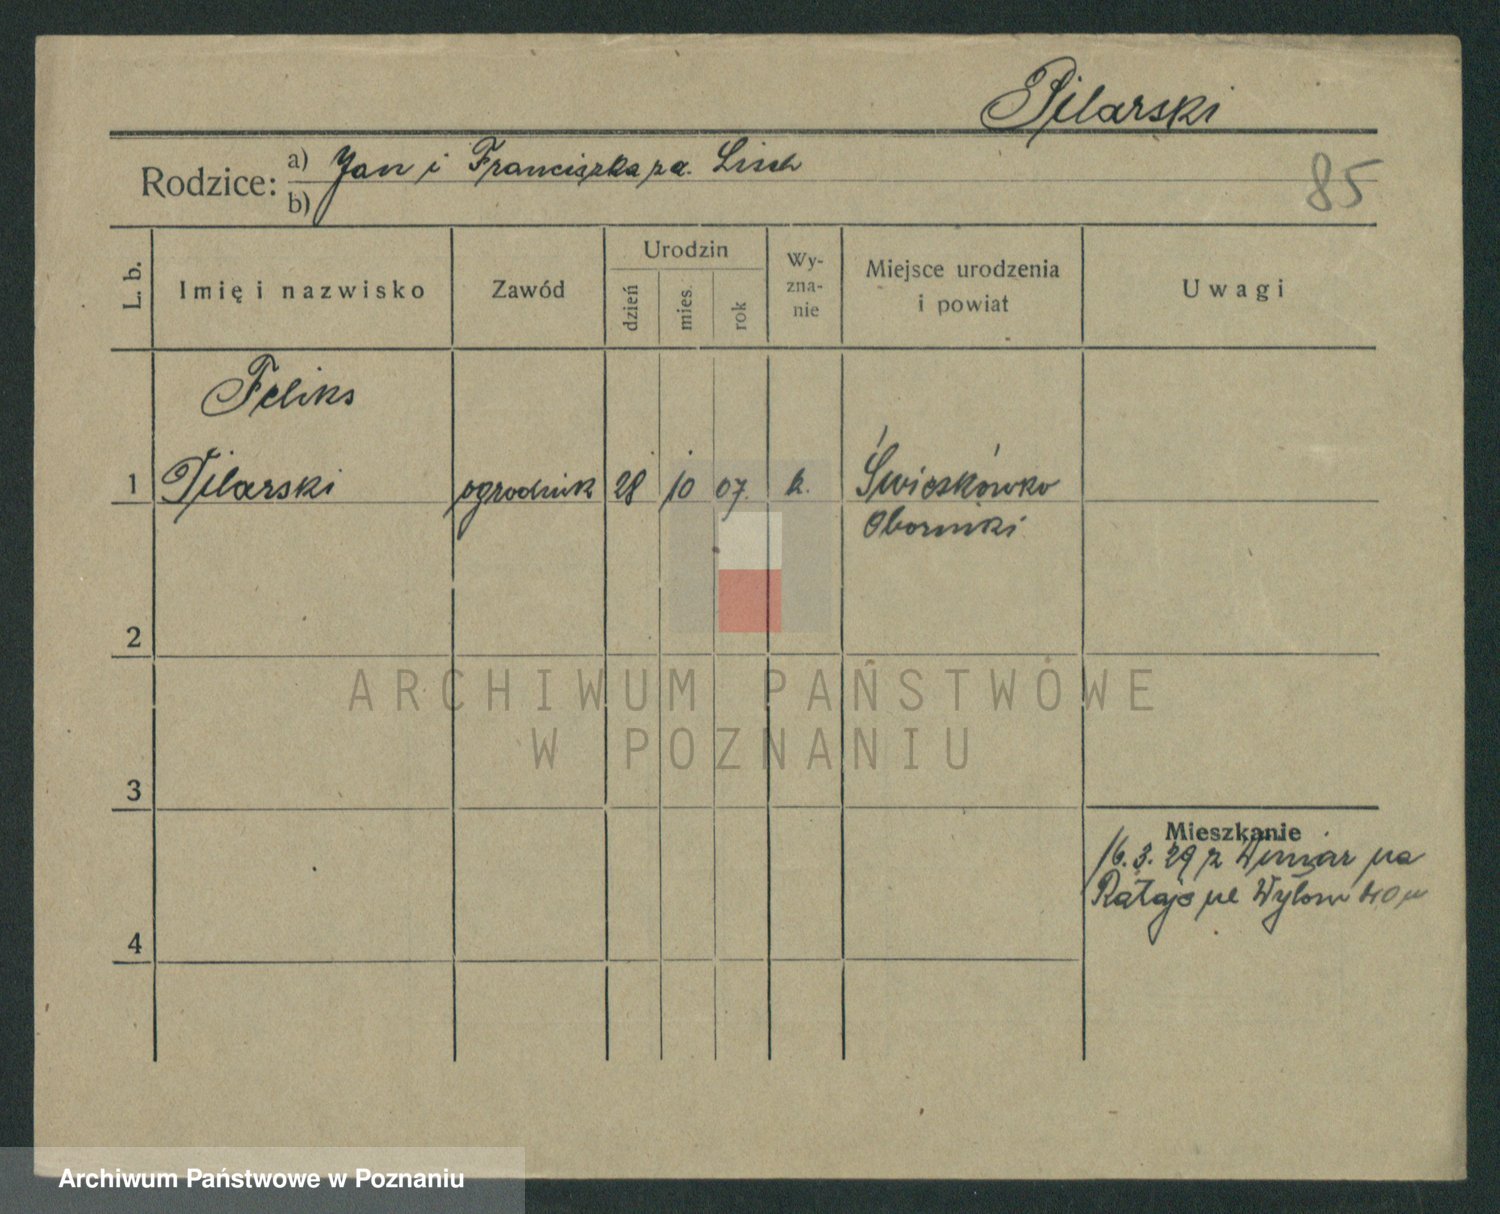 Pilarski
Rodzice: a) Jan i Franciszka za. Lisek
b)
85
L. b.
Imię i nazwisko
Zawód
Urodzin
dzień
mies.
rok
Wy-
zna-
nie
Miejsce urodzenia
i powiat
Uwagi
Feliks
1 Pilarski ogrodnik 28 10 07. k.
Oborniki
2
3
4
Mieszkanie
16.3.29 z Winiar na
Rataje ul Wyłom
ARCHIWUM PAŃSTWOWE
W POZNANIU
Archiwum Państwowe w Poznaniu